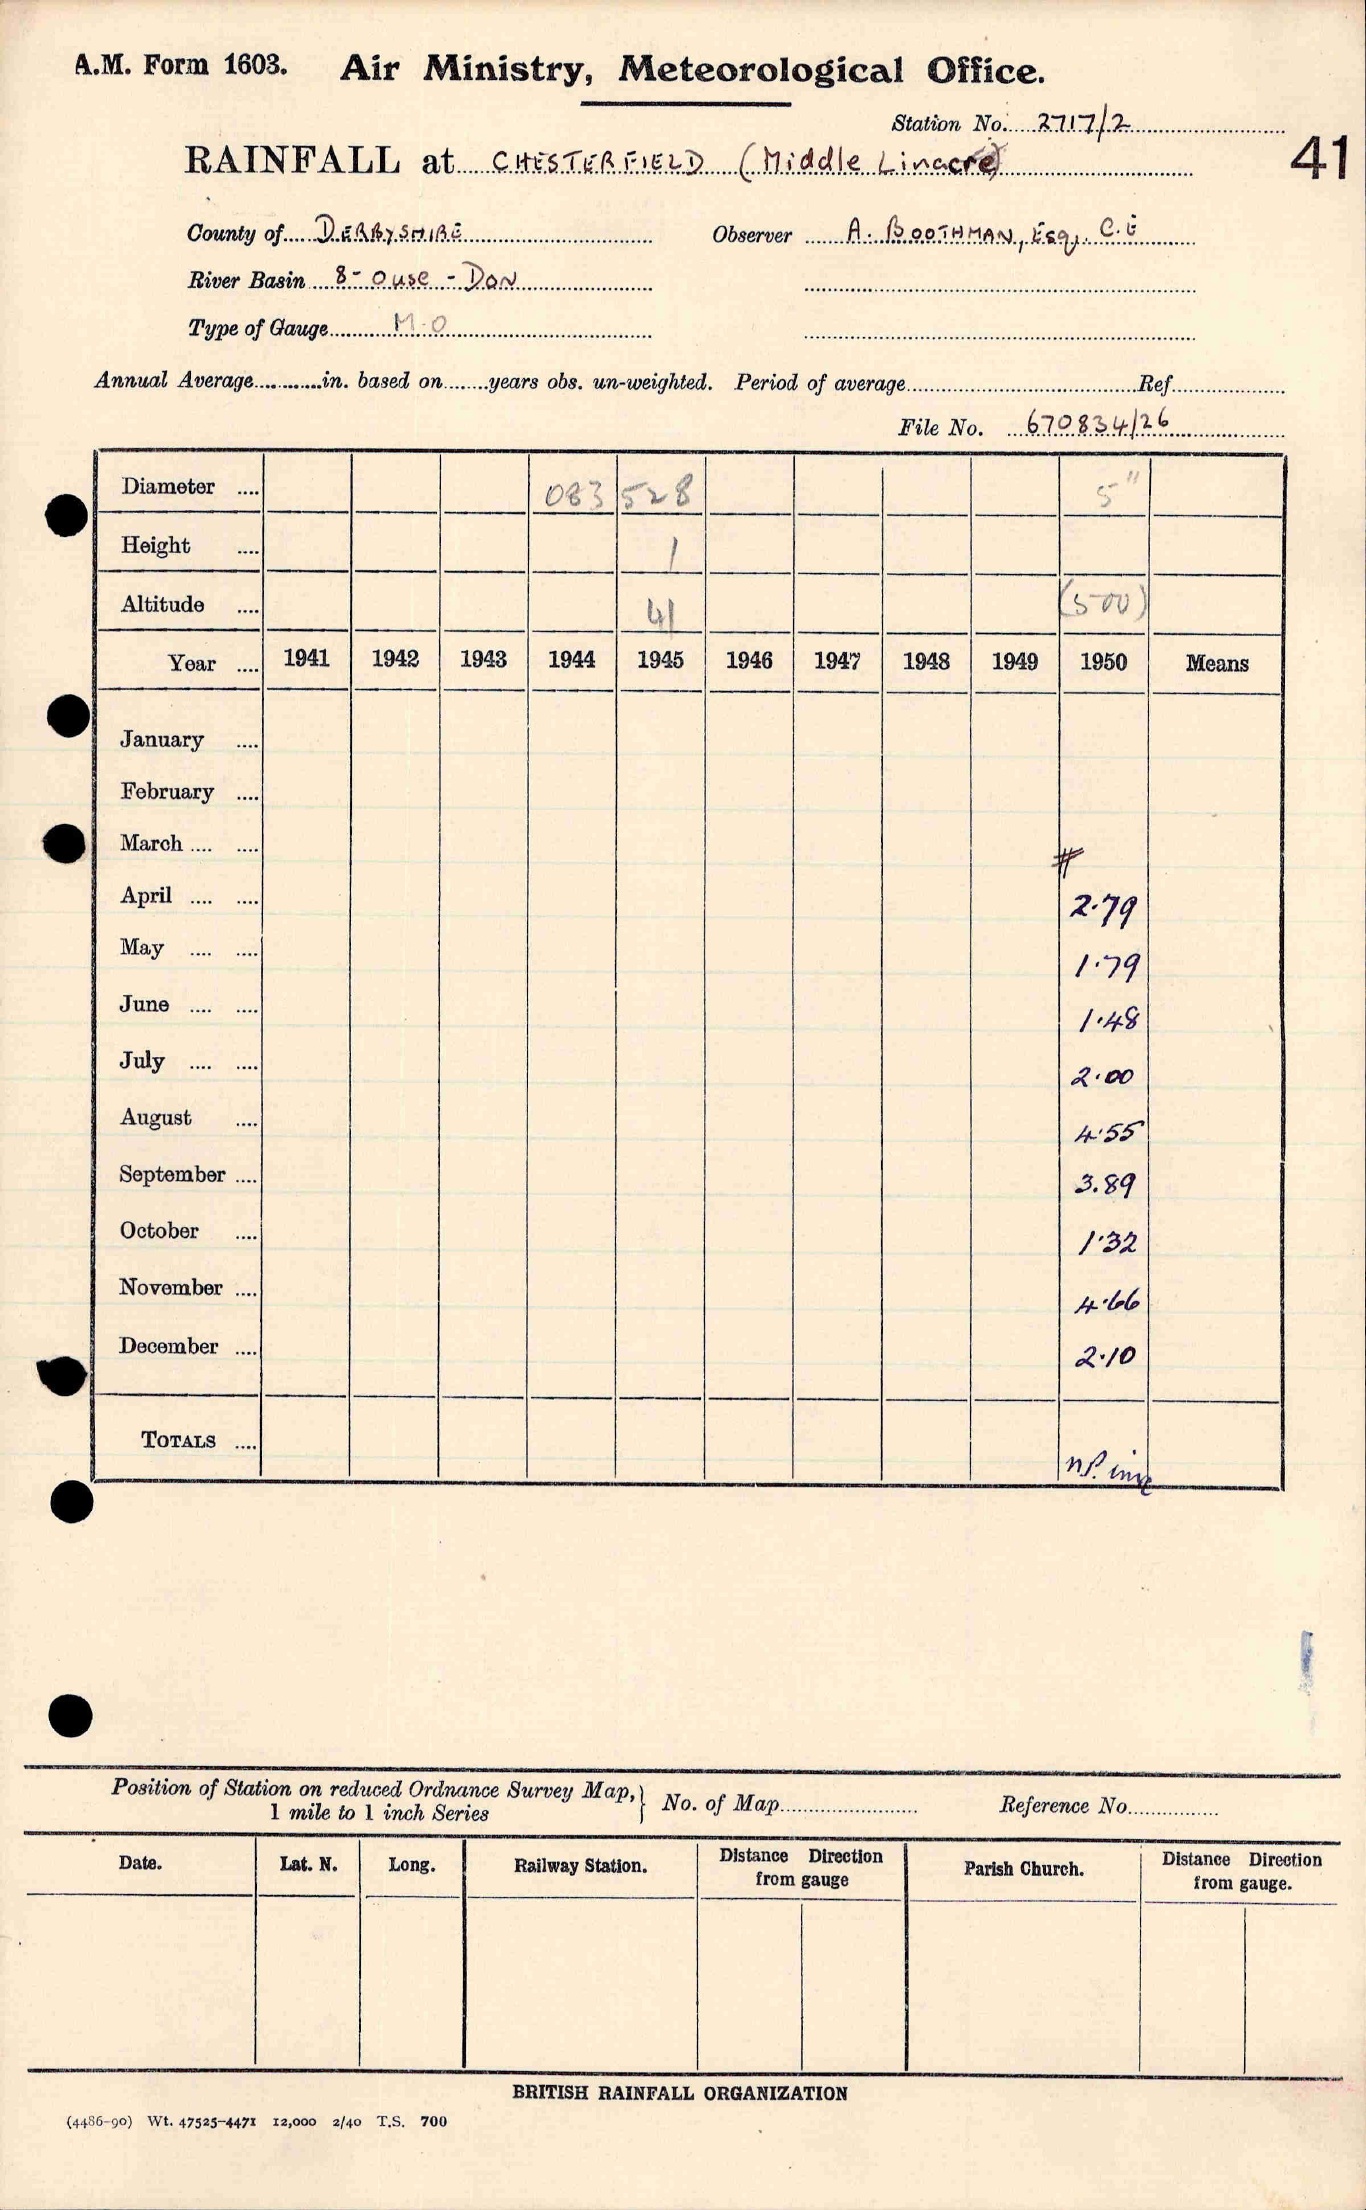 A.M. Form 1603. Air Ministry, Meteorological Office.
Station No. 2717/2
41
RAINFALL at CHESTERFIELD (Middle Linacre)
County of DERBYSHIRE Observer A. BOOTHMAN, Esq., C.E
River Basin 8- Ouse - DON
Type of Gauge M.O
Annual Average............in. based on........years obs. un-weighted. Period of average............Ref............
File No. 670834/26
Diameter .... 083 528 5"
Height .... 1
Altitude .... 41 (500)
Year .... 1941 1942 1943 1944 1945 1946 1947 1948 1949 1950 Means
January ....
February ....
March .... ....
#
April .... .... 2.79
May .... .... 1.79
June .... .... 1.48
July .... .... 2.00
August .... 4.55
September .... 3.89
October .... 1.32
November .... 4.66
December .... 2.10
TOTALS ....
Position of Station on reduced Ordnance Survey Map, } No. of Map............ Reference No............
1 mile to 1 inch Series
Date. Lat. N. Long. Railway Station. Distance Direction Parish Church. Distance Direction
from gauge from gauge.
BRITISH RAINFALL ORGANIZATION
(4486-90) Wt. 47525-4471 12,000 2/40 T.S. 700